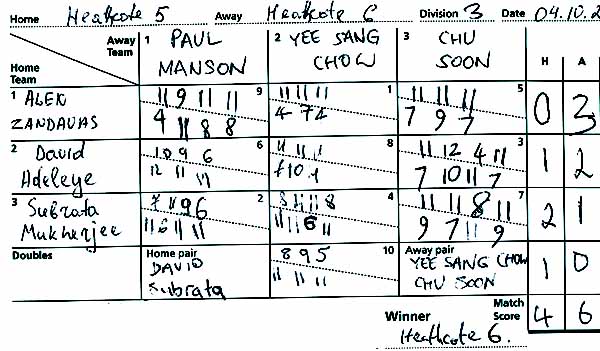 Home Heathcote 5 Away Heathcote 6 Division 3 Date 04.10.2
Away Team 1 PAUL MANSON 2 YEE SANG CHOW 3 CHU SOON H A
Home Team
1 ALEN ZANDAVAS
9 11 9 11 11
4 11 8 8
1 11 11 11
4 7 4
5 11 11 11
7 9 7
0 3
2 David Adeleye
6 10 9 6
12 11 11
8 11 11
3 11 12 4 11
7 10 11 7
1 2
3 Subrata Mukherjee
2 7 11 9 6
11 6 11 11
4 8
11 11 6 11
7 11 11 8 11
9 7 11 9
2 1
Doubles Home pair DAVID Subrata
10 8 9 5
11 11 11
Away pair YEE SANG CHOW CHU SOON
1 0
Winner Heathcote 6.
Match Score 4 6